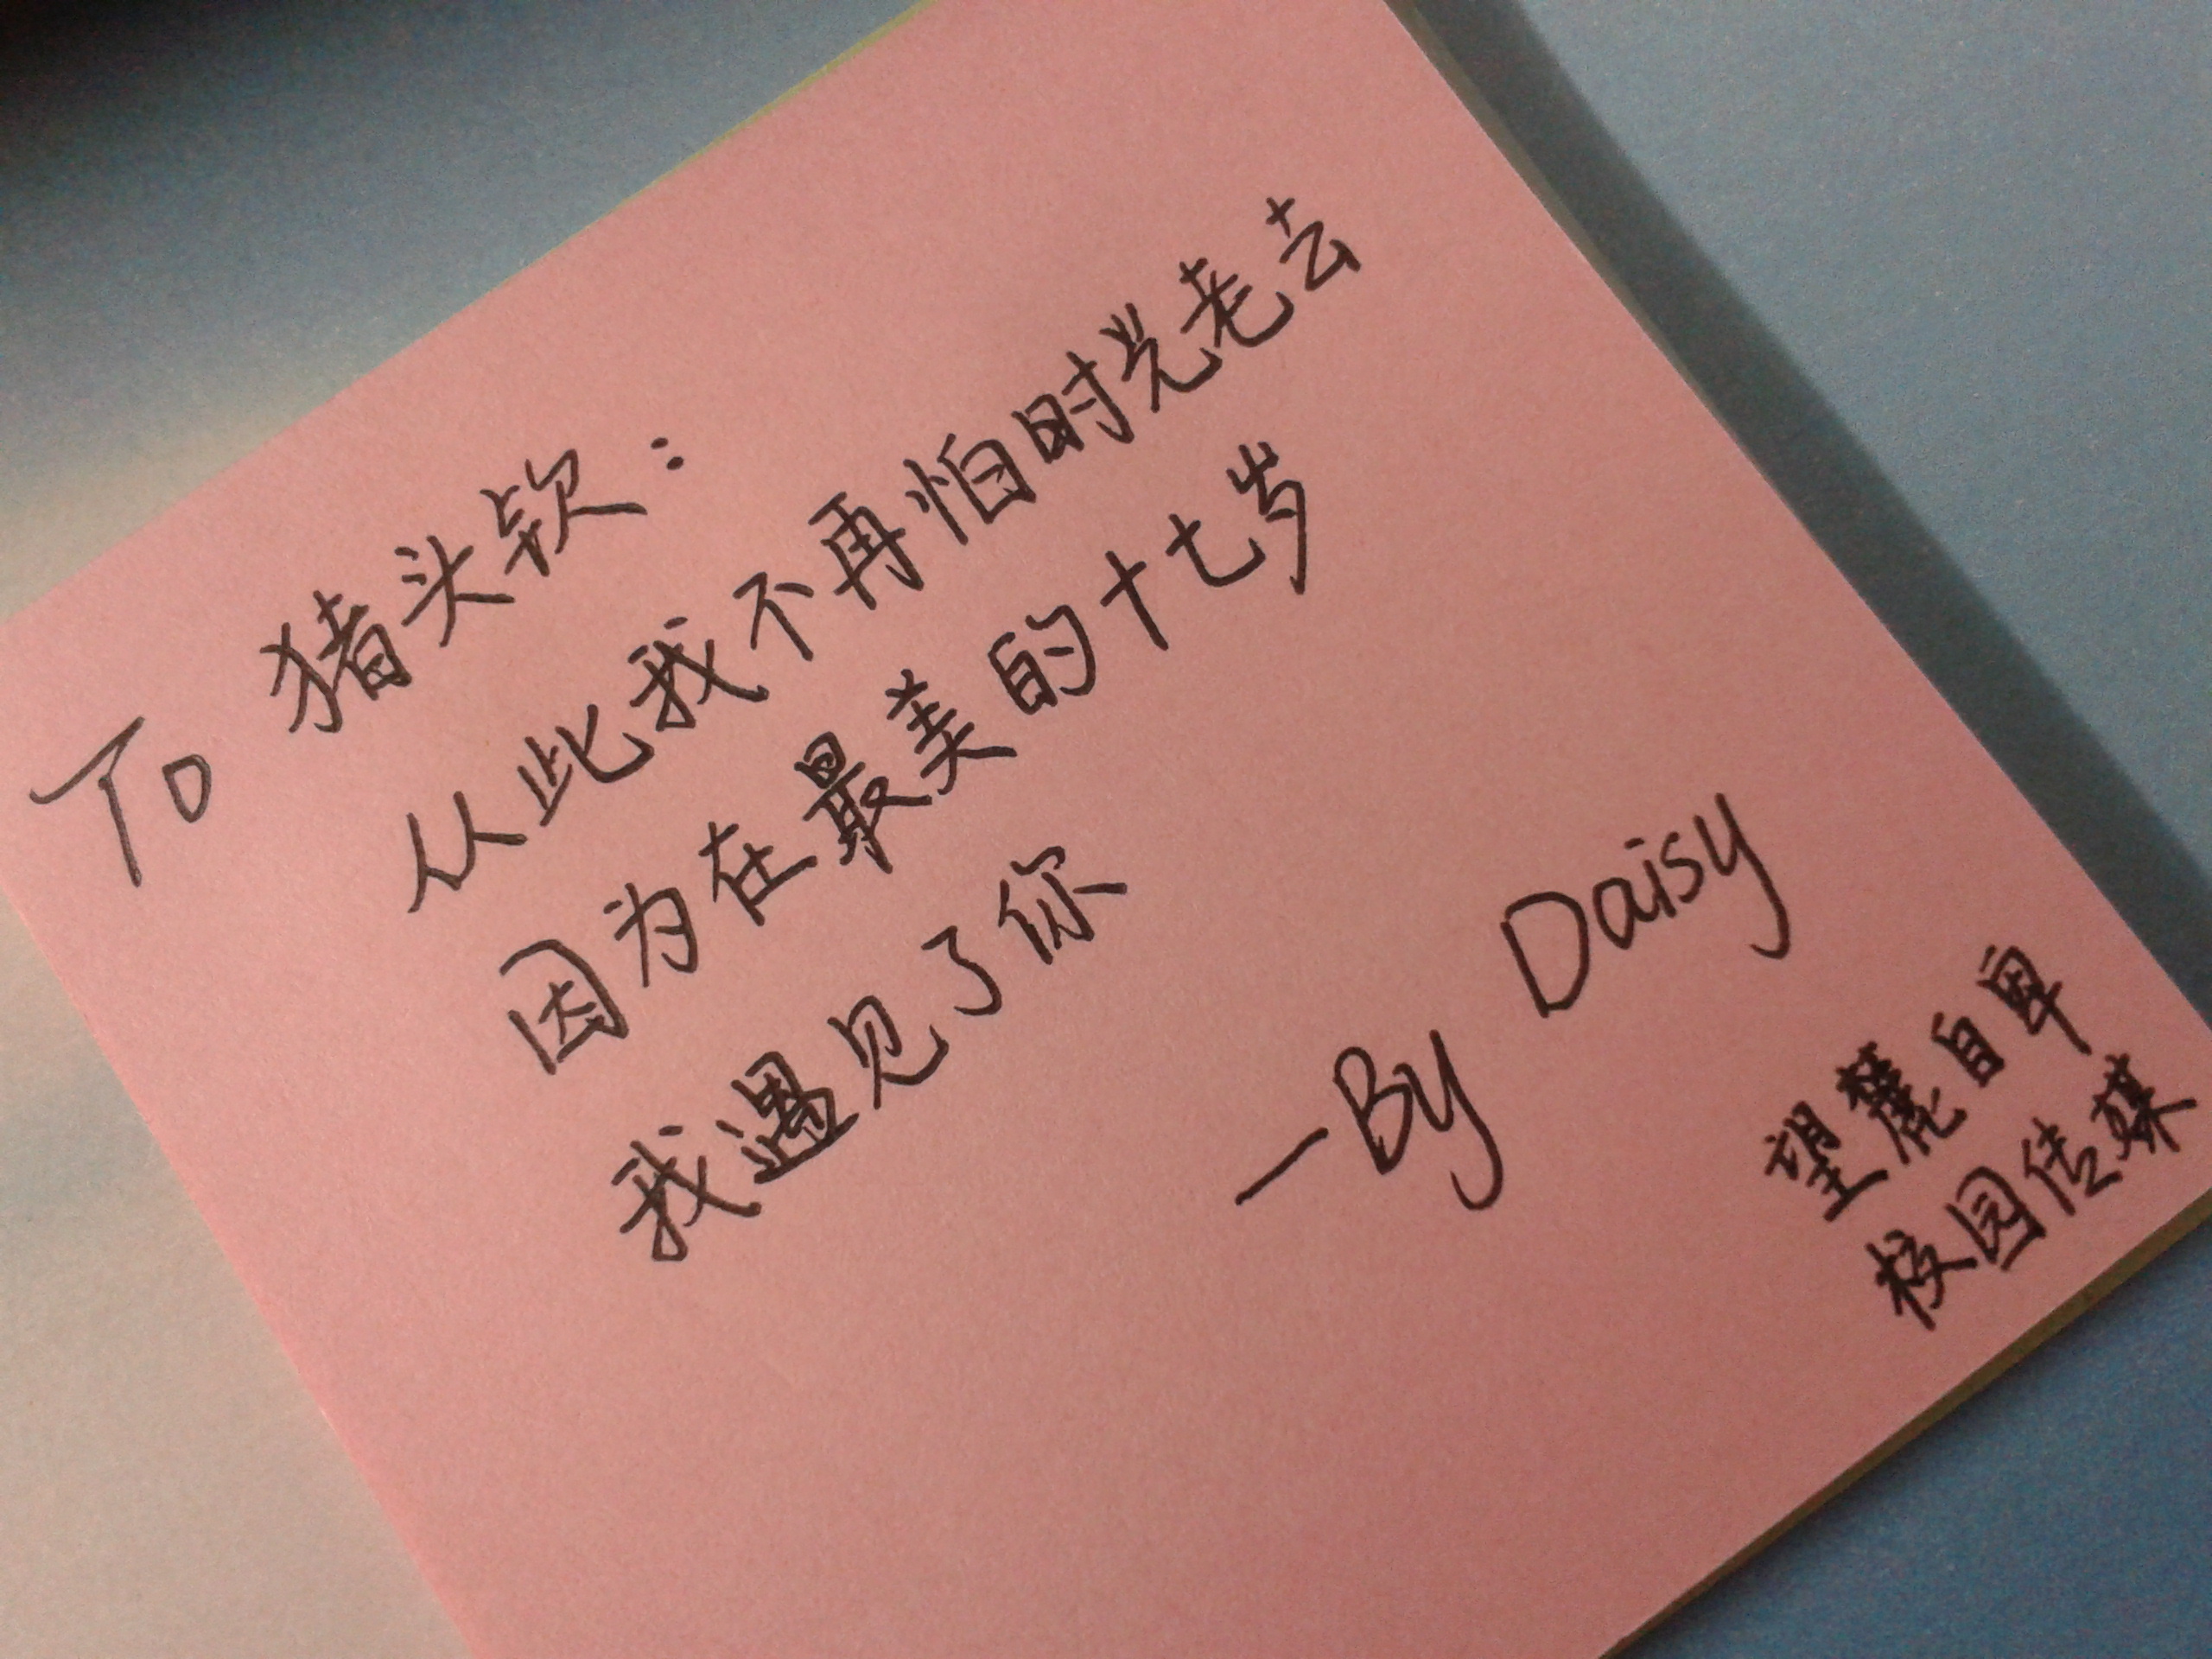 To 猪头钦：
从此我不再怕时光老去
因为在最美的十七岁
我遇见了你
—By Daisy
望麓自卑
校园传媒